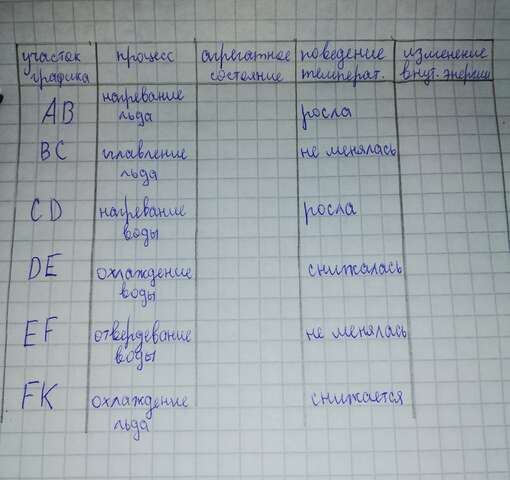 участок процесс агрегатное поведение изменение
графика состояние температ. внут. энергии
нагревание
AB льда росла
BC плавление не менялась
льда
CD нагревание росла
воды
DE охлаждение снижалась
воды
EF отвердевание не менялась
воды
FK охлаждение снижается
льда